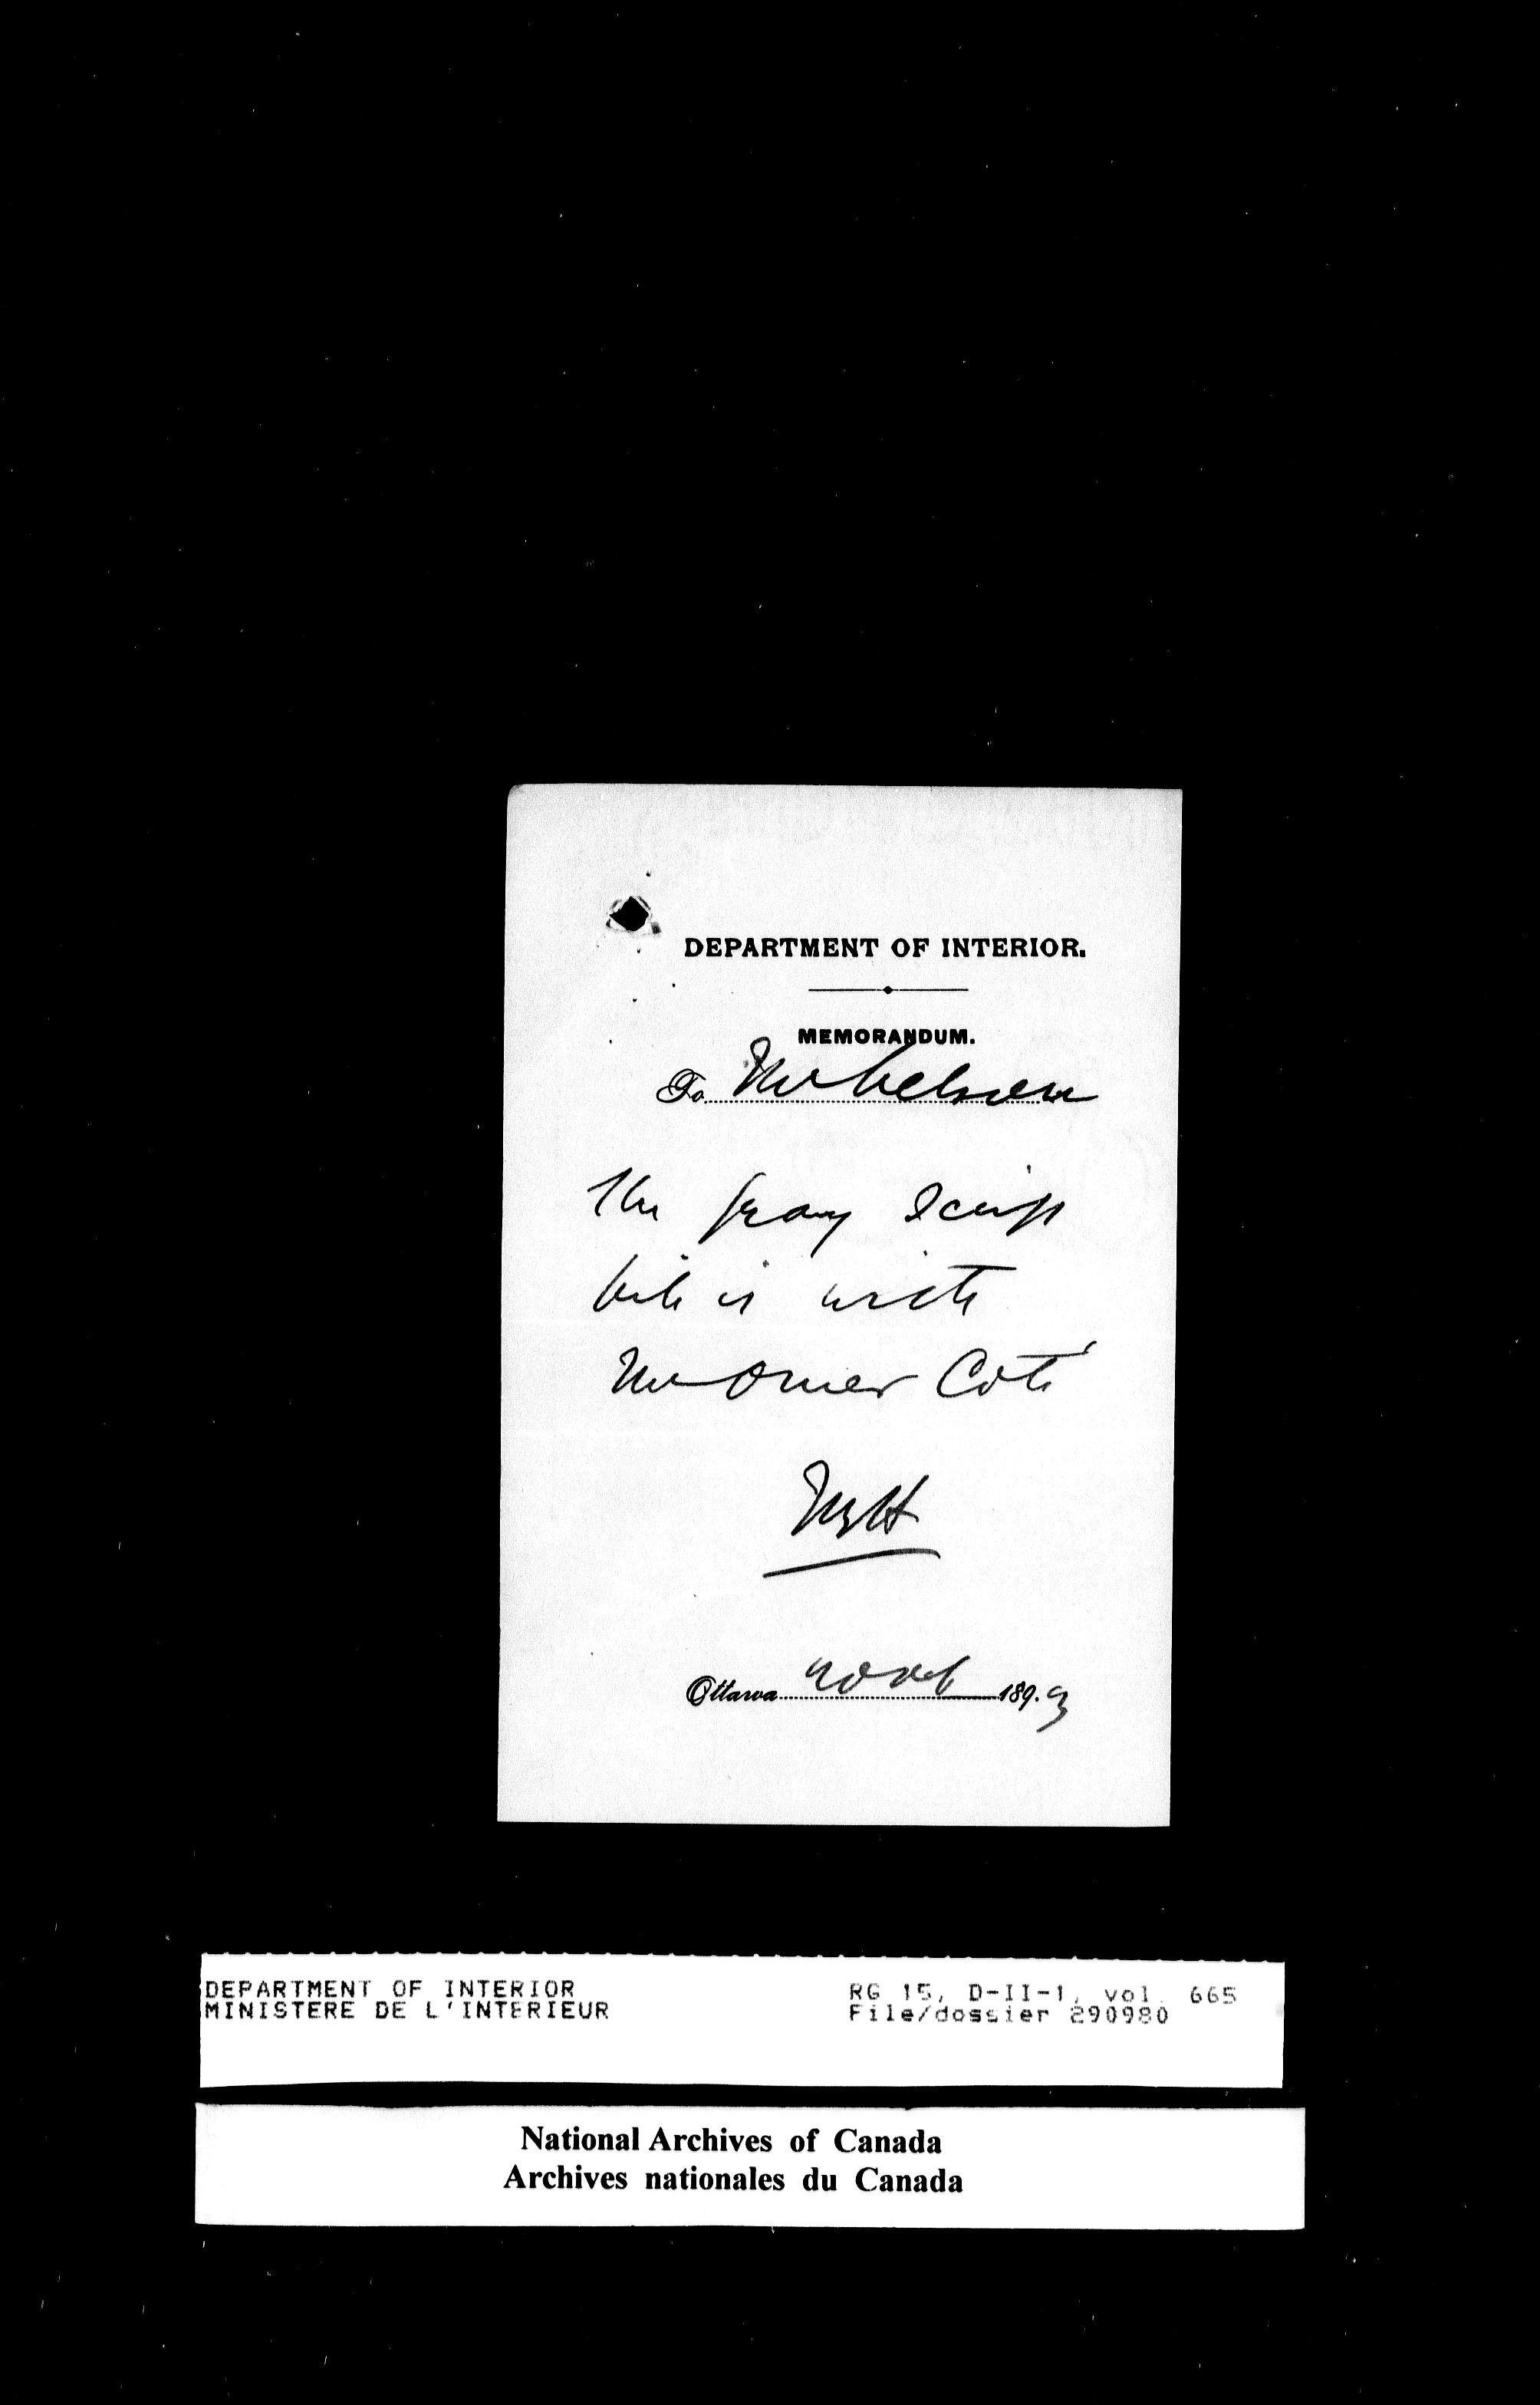 DEPARTMENT OF INTERIOR.
MEMORANDUM.
To Mr Nelson
The Gray Scrip
file is with
Mr Omer Coté
Ottawa Nov 6 1893
DEPARTMENT OF INTERIOR
MINISTERE DE L'INTERIEUR
RG 15, D-II-1, vol. 665
File/dossier 290980
National Archives of Canada
Archives nationales du Canada